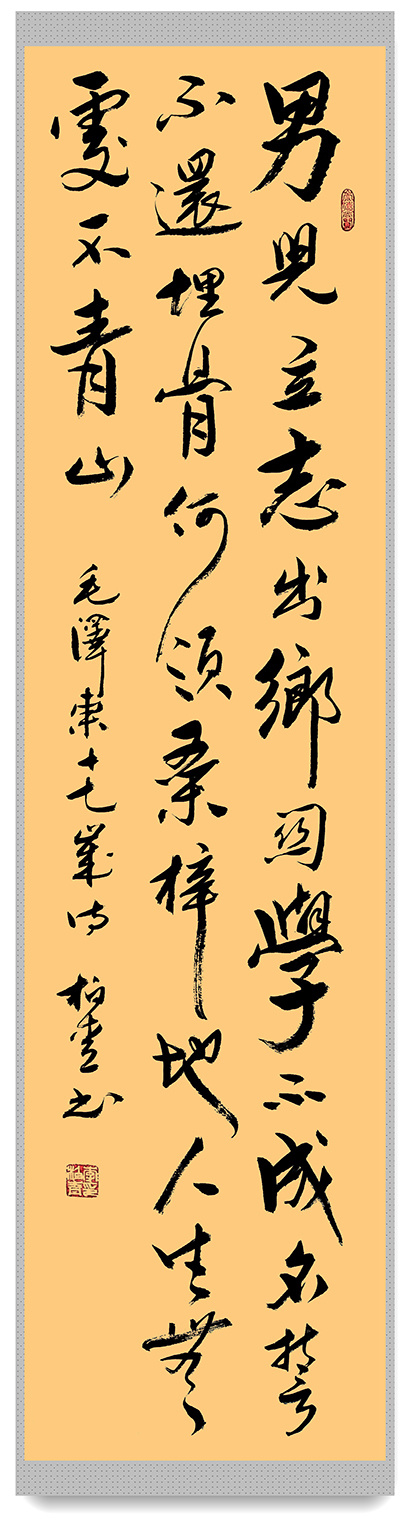 男兒立志出鄉關學不成名誓
不還埋骨何須桑梓地人生無
處不青山 毛澤東十七歲詩 柏書